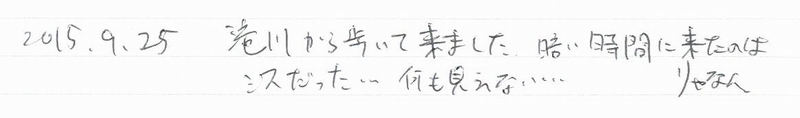 2015.9.25 滝川から歩いて来ました 暗い時間に来たのは
ミスだった… 何も見えない…… りゃなん